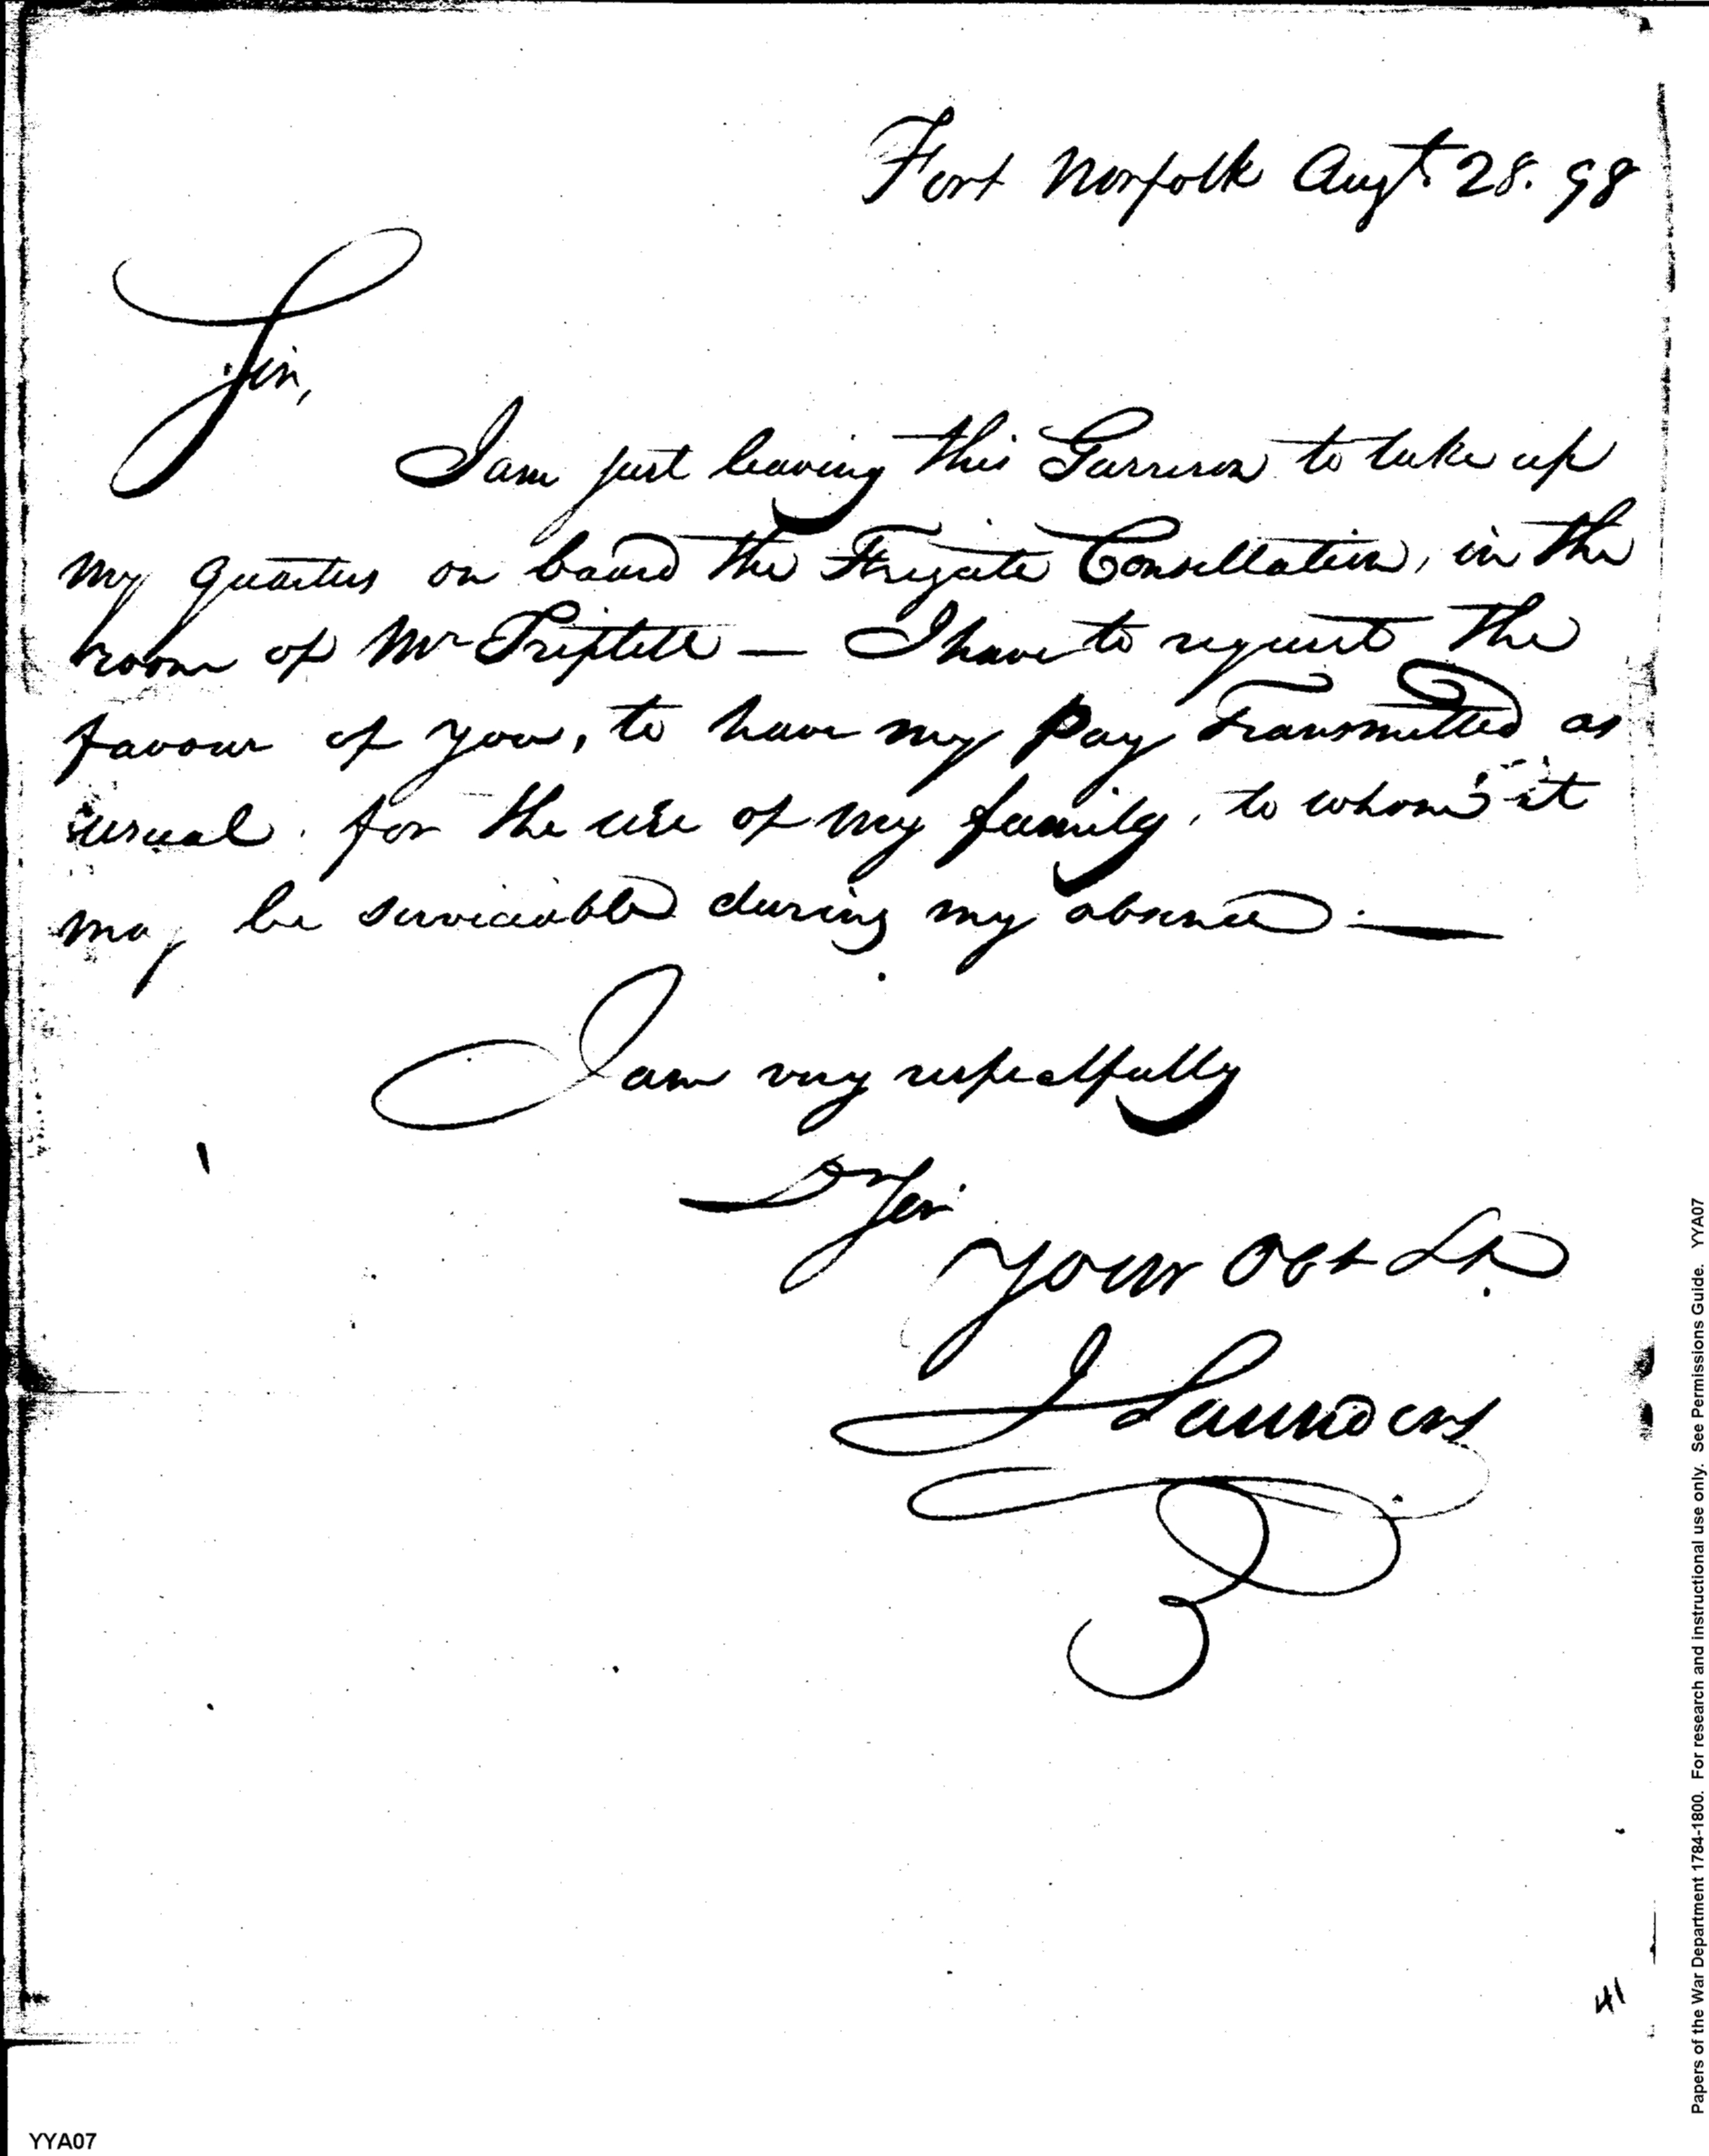 Fort Norfolk Augt 28. 98
Sir,
I am just leaving this Garrison to take up
my quarters on board the Frigate Constellation, in the
room of Mr Triplett — I have to request the
favour of you, to have my pay transmitted as
usual. for the use of my family, to whom it
may be serviceable during my absence. —
I am very respectfully
Dr Sir
Your Obt St.
J Saunders
41
Papers of the War Department 1784-1800. For research and instructional use only. See Permissions Guide. YYA07
YYA07